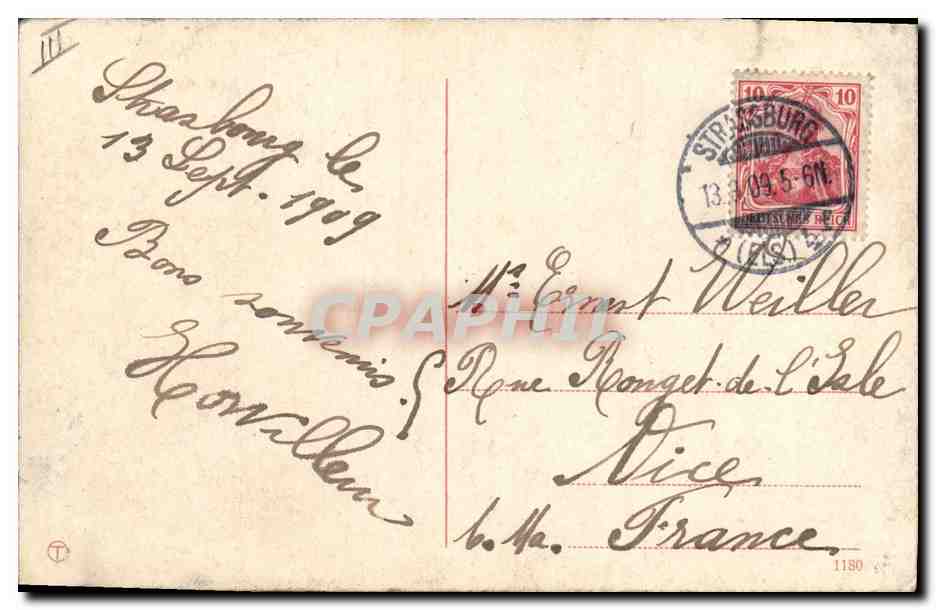 III
Strasbourg le
13 Sept. 1909
Bons souvenirs
10 10
DEUTSCHES REICH
STRASSBURG
13.9.09.5-6N.
(ELS.)
CPAPHIL
Mr. Ernst Weiller
Rue Rouget-de-l'Isle
Nice
A. Ma. France
T
1180